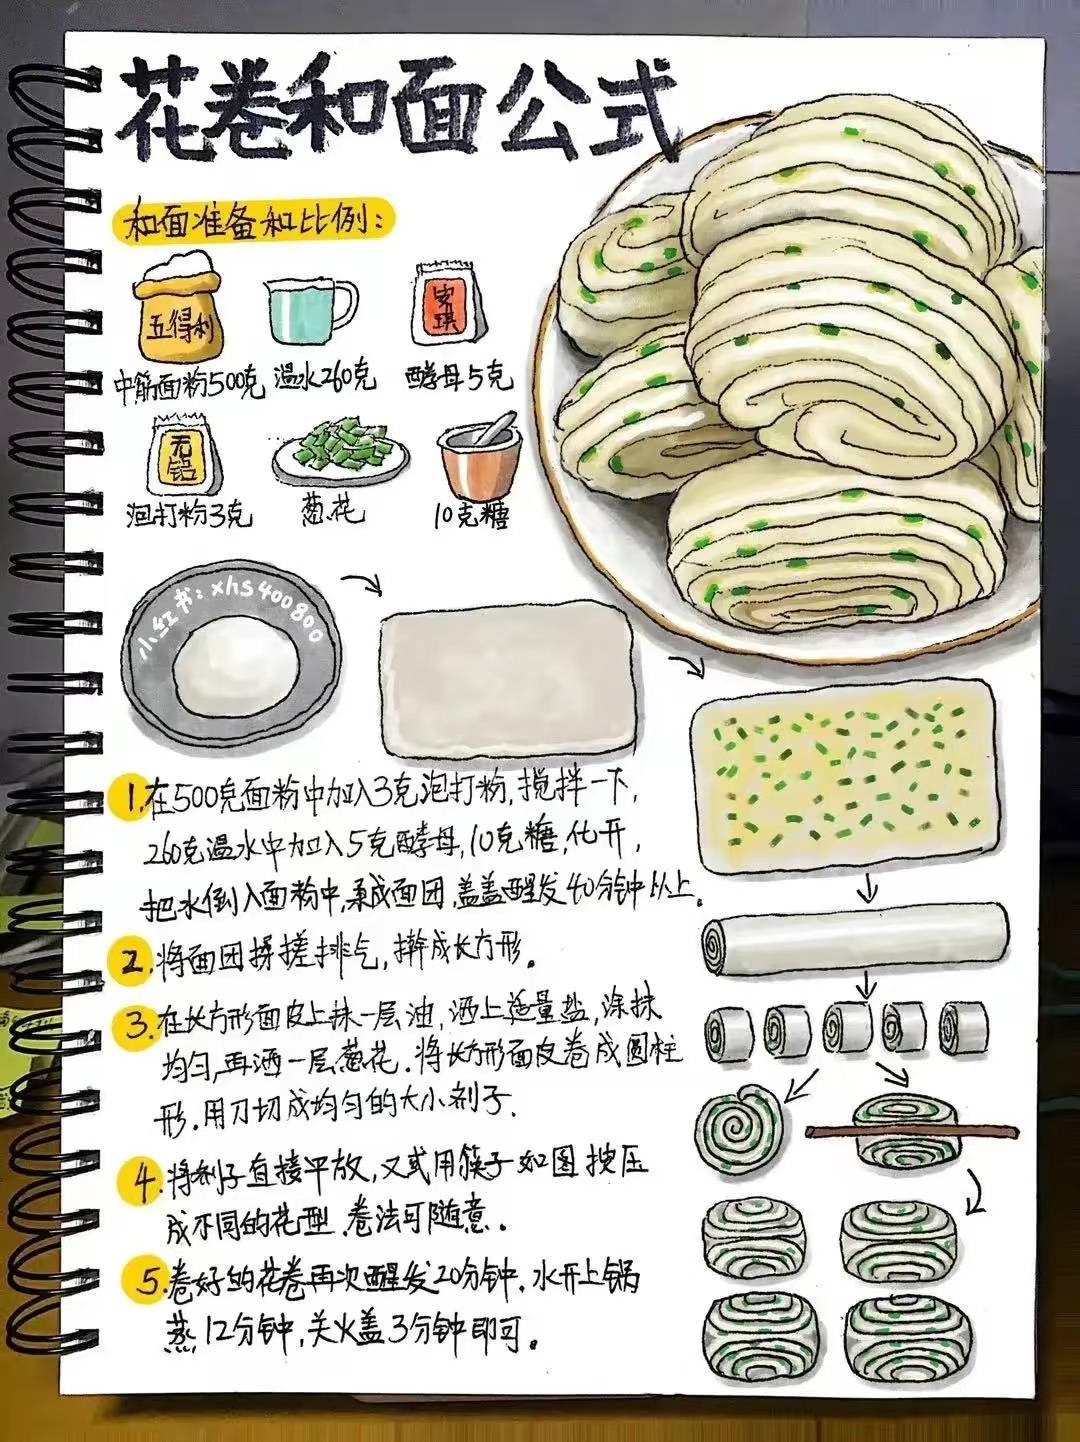 花卷和面公式
和面准备和比例:
五得利
安琪
中筋面粉500克 温水260克 酵母5克
无铝
泡打粉3克 葱花 10克糖
小红书:xhs400800
1.在500克面粉中加入3克泡打粉,搅拌一下,
260克温水中加入5克酵母,10克糖,化开,
把水倒入面粉中,揉成面团,盖盖醒发40分钟以上。
2.将面团揉搓排气,擀成长方形。
3.在长方形面皮上抹一层油,洒上适量盐,涂抹
均匀,再洒一层葱花.将长方形面皮卷成圆柱
形.用刀切成均匀的大小剂子.
4.将剂子直接平放,又或用筷子如图按压
成不同的花型.卷法可随意。
5.卷好的花卷再次醒发20分钟.水开上锅
蒸12分钟,关火盖3分钟即可。